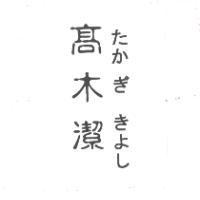 髙木潔
たかぎ きよし